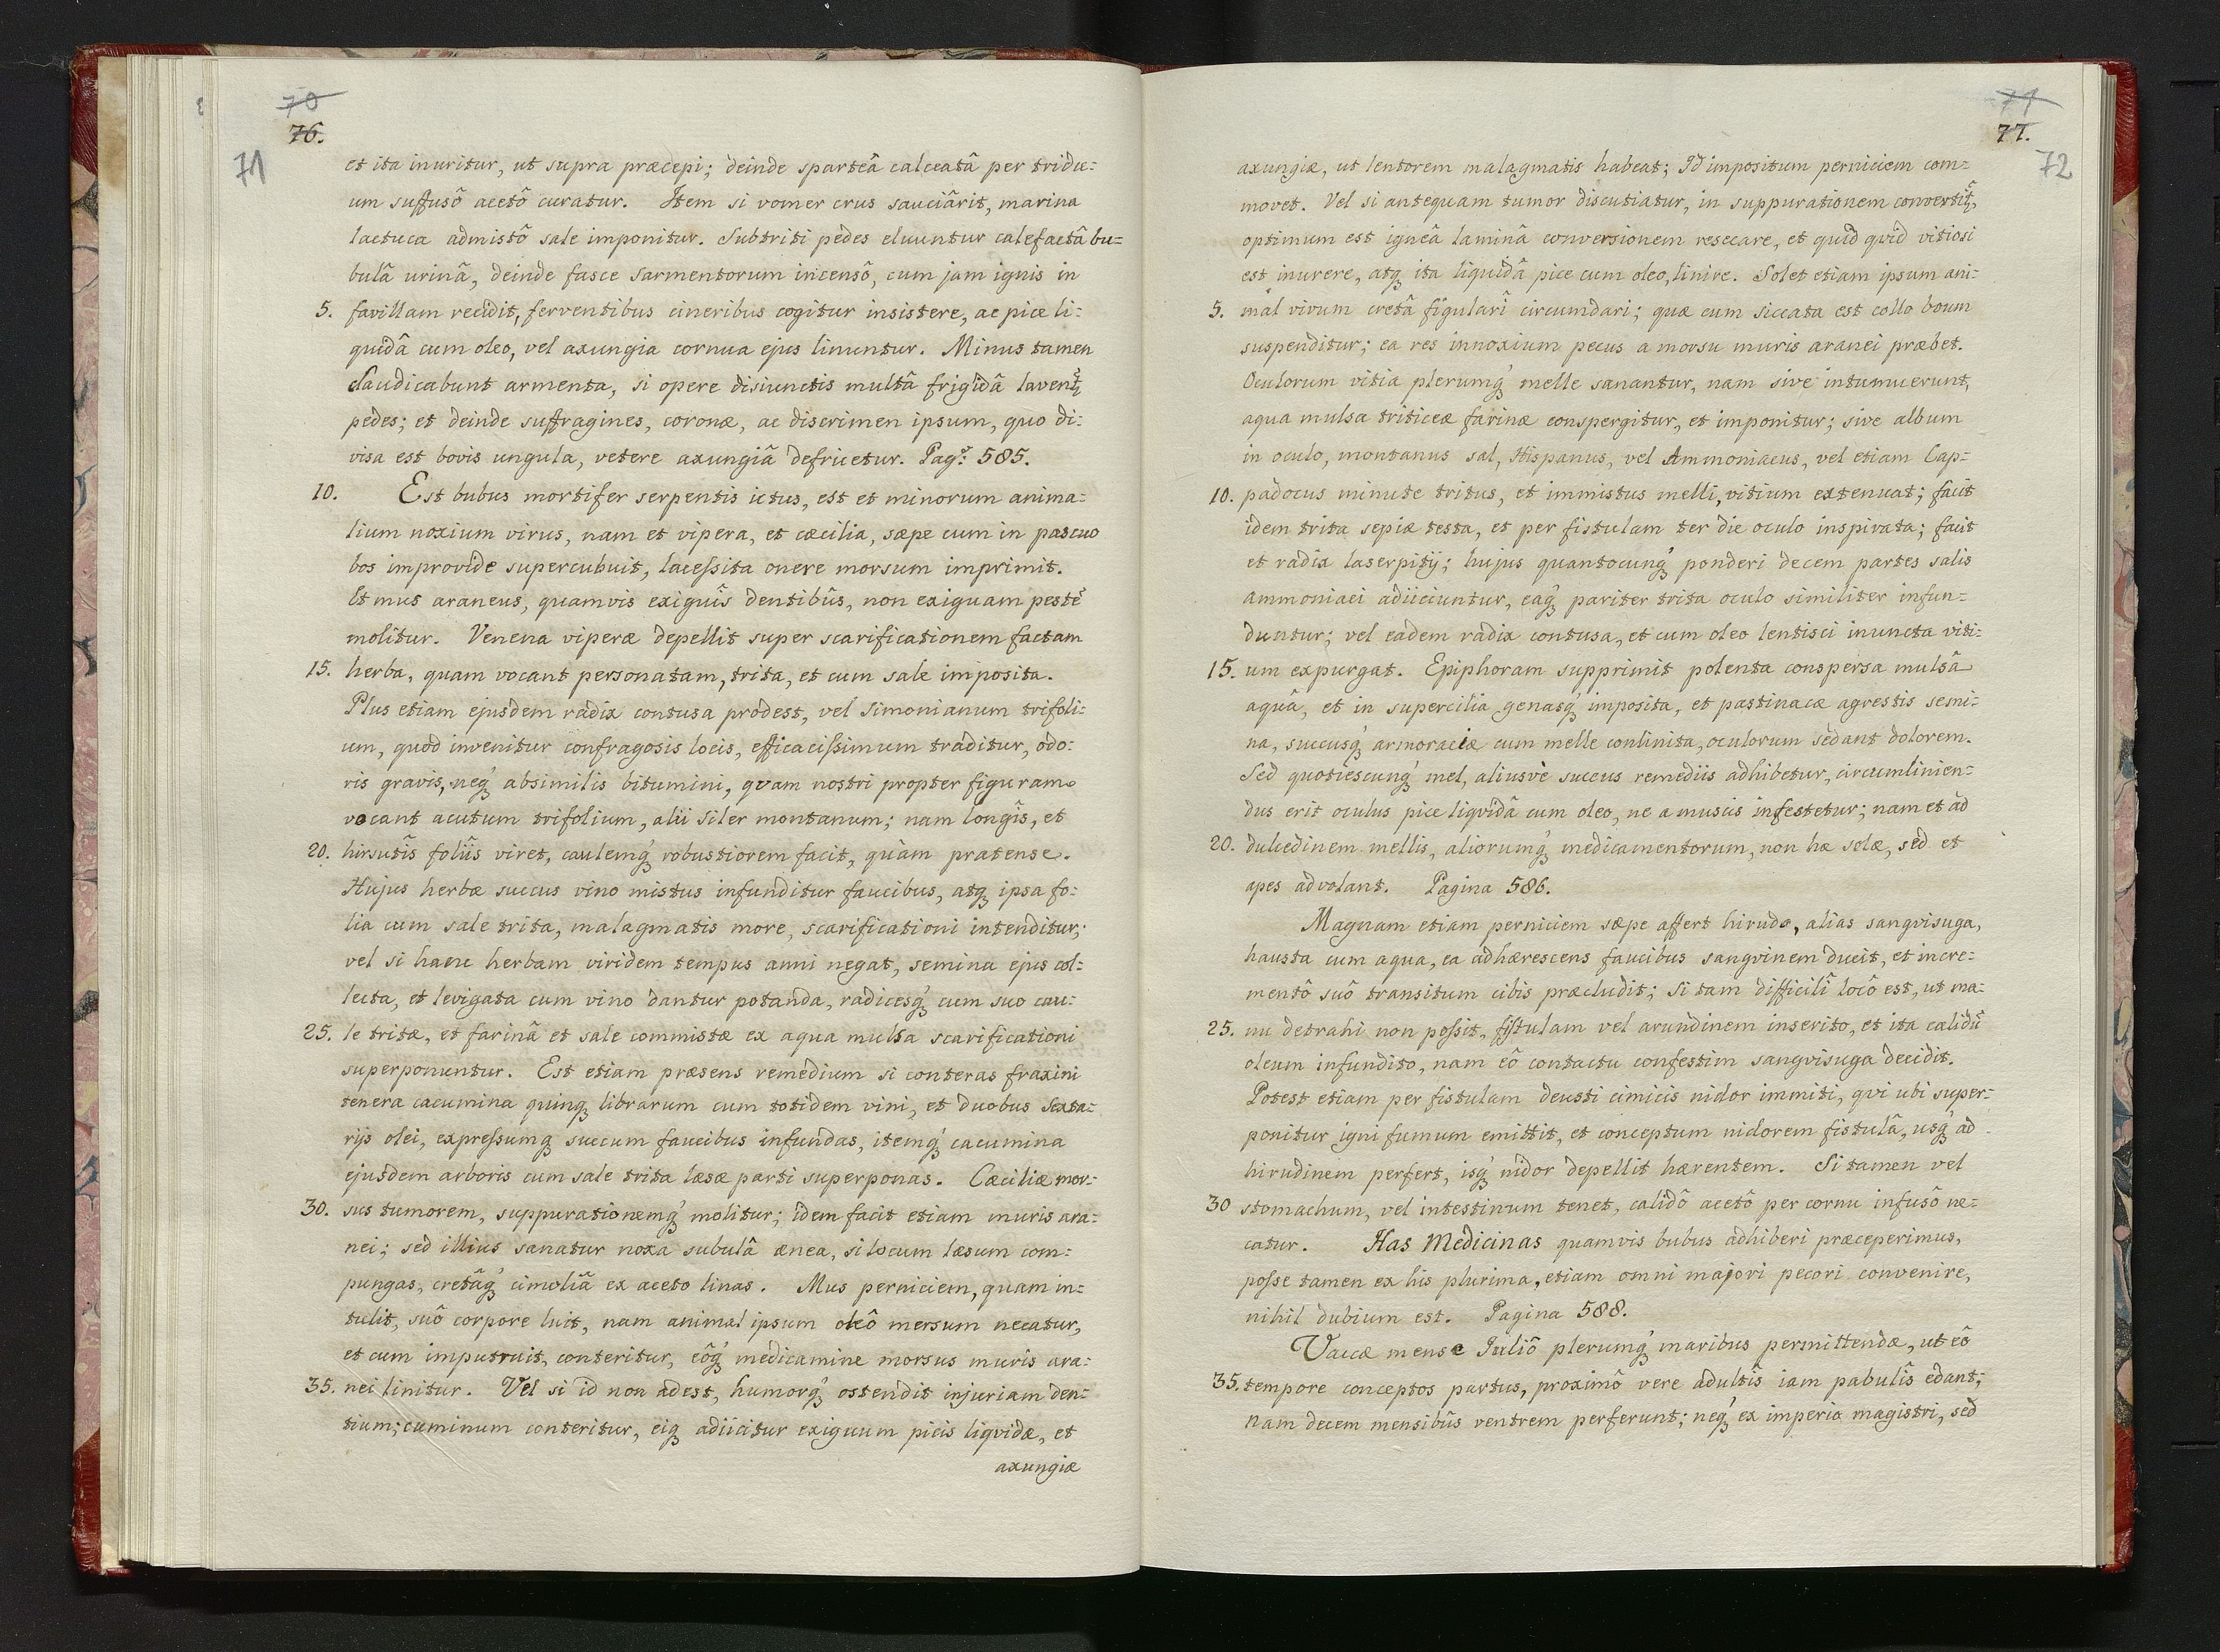 70
76.
71
et ita inuritur, ut supra præcepi; deinde sparteâ calceatâ per tridu=
um suffusô acetô curatur. Item si vomer crus sauciârit, marina
lactuca admistô sale imponitur. Subtriti pedes eluuntur calefactâ bu=
bulâ urinâ, deinde fasce sarmentorum incensô, cum jam ignis in
5. favillam recidit, ferventibus cineribus cogitur insistere, ac pice li=
quidâ cum oleo, vel axungia cornua ejus linuntur. Minus tamen
claudicabunt armenta, si opere disiunctis multâ frigidâ lavent̃
pedes; et deinde suffragines, coronæ, ac discrimen ipsum, quo di=
visa est bovis ungula, vetere axungiâ defricetur. Pagᵃ: 585.
10. Est bubus mortifer serpentis ictus, est et minorum anima=
lium noxium virus, nam et vipera, et cæcilia, sæpe cum in pascuo
bos improvide supercubuit, laceſsita onere morsum imprimit.
Et mus araneus, quamvis exiguîs dentibûs, non exiguam pestẽ
molitur. Venena viperæ depellit super scarificationem factam
15. herba, quam vocant personatam, trita, et cum sale imposita.
Plus etiam ejusdem radix contusa prodest, vel Simonianum trifoli=
um, quod invenitur confragosis locis, efficaciſsimum traditur, odo=
ris gravis, neq́ absimilis bitumini, qvam nostri propter figuram
vocant acutum trifolium, alii siler montanum; nam longîs, et
20. hirsutîs foliîs viret, caulemq́ robustiorem facit, quàm pratense.
Hujus herbæ succus vino mistus infunditur faucibus, atq ipsa fo=
lia cum sale trita, malagmatis more, scarificationi intenditur;
vel si hanc herbam viridem tempus anni negat, semina ejus col=
lecta, et levigata cum vino dantur potanda, radicesq́ cum suo cau=
25. le tritæ, et farinâ et sale commistæ ex aqua mulsa scarificationi
superponuntur. Est etiam præsens remedium si conteras fraxini
tenera cacumina quinq librarum cum totidem vini, et duobus sexta=
rijs olei, expreſsumq succum faucibus infundas, itemq́ cacumina
ejusdem arboris cum sale trita læsæ parti superponas. Cæciliæ mor=
30. sus tumorem, suppurationemq́ molitur; idem facit etiam muris ara=
nei; sed illius sanatur noxa subulâ ænea, si locum læsum com=
pungas, cretâq́ cimoliâ ex aceto linas. Mus perniciem, quam in=
tulit, suô corpore luit, nam animal ipsum oleô mersum necatur,
et cum imputruit, conteritur, eôq́ medicamine morsus muris ara=
35. nei linitur. Vel si id non adest, humorq́ ostendit injuriam den=
tium; cuminum conteritur, eiq adiicitur exiguum picis liqvidæ, et
axungiæ
71
77.
72
axungiæ, ut lentorem malagmatis habeat; Id impositum perniciem com=
movet. Vel si antequam tumor discutiatur, in suppurationem convertit̃,
optimum est igneâ laminâ conversionem resecare, et quid qvid vitiosi
est inurere, atq ita liquidâ pice cum oleo, linire. Solet etiam ipsum ani=
5. mal vivum cretâ figulari circumdari; quæ cum siccata est collo boum
suspenditur; ea res innoxium pecus a morsu muris aranei præbet.
Oculorum vitia plerumq́ melle sanantur, nam sive intumuerunt,
aqua mulsa triticeæ farinæ conspergitur, et imponitur; sive album
in oculo, montanus sal, Hispanus, vel Ammoniacus, vel etiam Cap=
10. padocus minute tritus, et immistus melli, vitium extenuat; facit
idem trita sepiæ testa, et per fistulam ter die oculo inspirata; facit
et radix laserpitij; hujus quantocunq́ ponderi decem partes salis
ammoniaci adiiciuntur, eaq́ pariter trita oculo similiter infun=
duntur; vel eadem radix contusa, et cum oleo lentisci inuncta viti=
15. um expurgat. Epiphoram supprimit polenta conspersa mulsâ
aquâ, et in supercilia genasq́ imposita, et pastinacæ agrestis semi=
na, succusq́ armoraciæ cum melle conlinita, oculorum sedant dolorem.
Sed quotiescunq́ mel, aliusvè succus remediis adhibetur, circumlinien=
dus erit oculus pice liqvidâ cum oleo, ne a muscis infestetur; nam et ad
20. dulcedinem mellis, aliorumq́ medicamentorum, non hæ solæ, sed et
apes advolant. Pagina 586.
Magnam etiam perniciem sæpe affert hirudo, alias sangvisuga,
hausta cum aqua, ea adhærescens faucibus sangvinem ducit, et incre=
mentô suô transitum cibis præcludit; si tam difficilî locô est, ut ma=
25. nu detrahi non poſsit, fistulam vel arundinem inserito, et ita calidũ
oleum infundito, nam eô contactu confestim sangvisuga decidit.
Potest etiam per fistulam deusti cimicis nidor immiti, qvi ubi super=
ponitur igni fumum emittit, et conceptum nidorem fistulâ, usq́ ad
hirudinem perfert, isq́ nidor depellit hærentem. Si tamen vel
30 stomachum, vel intestinum tenet, calidô acetô per cornu infusô ne=
catur. Has Medicinas quamvis bubus adhiberi præceperimus,
poſse tamen ex his plurima, etiam omni majori pecori convenire,
nihil dubium est. Pagina 588.
Vaccæ mense Juliô plerumq́ maribus permittendæ, ut eô
35. tempore conceptos partus, proximô vere adultîs iam pabulîs edant;
nam decem mensibûs ventrem perferunt; neq́ ex imperio magistri, sed